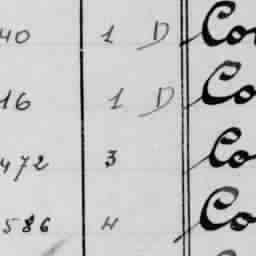 40 1 D Co
16 1 D Co
472 3 Co
586 4 Co